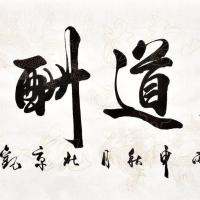 道酬
丙申秋月北京